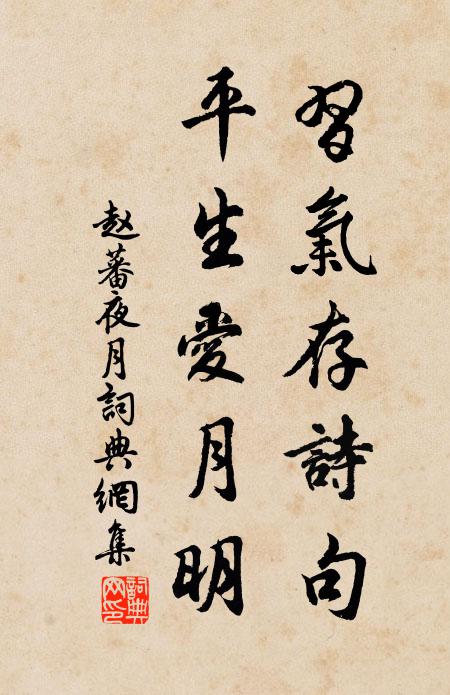 習氣存詩句
平生愛月明
赵蕃夜月詞典網集
詞典網印